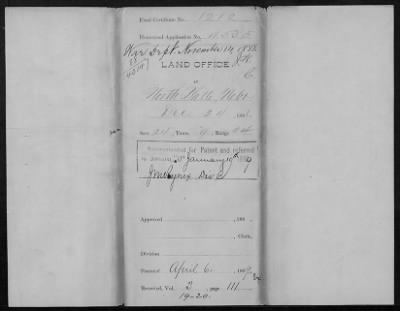 Final Certificate No. 1212
Homestead Application No. 4535
War Dept. November 14, 1888
LAND OFFICE
AT
North Platte Nebr
Dec 24 188
Sec. 24, Town. 9, Range 24
Recommended for Patent and referred
to January 19th
Div C
Approved , 188 .
, Clerk.
Division
Patented April 6, 188
Recorded, Vol. 2, page 111
19-20.